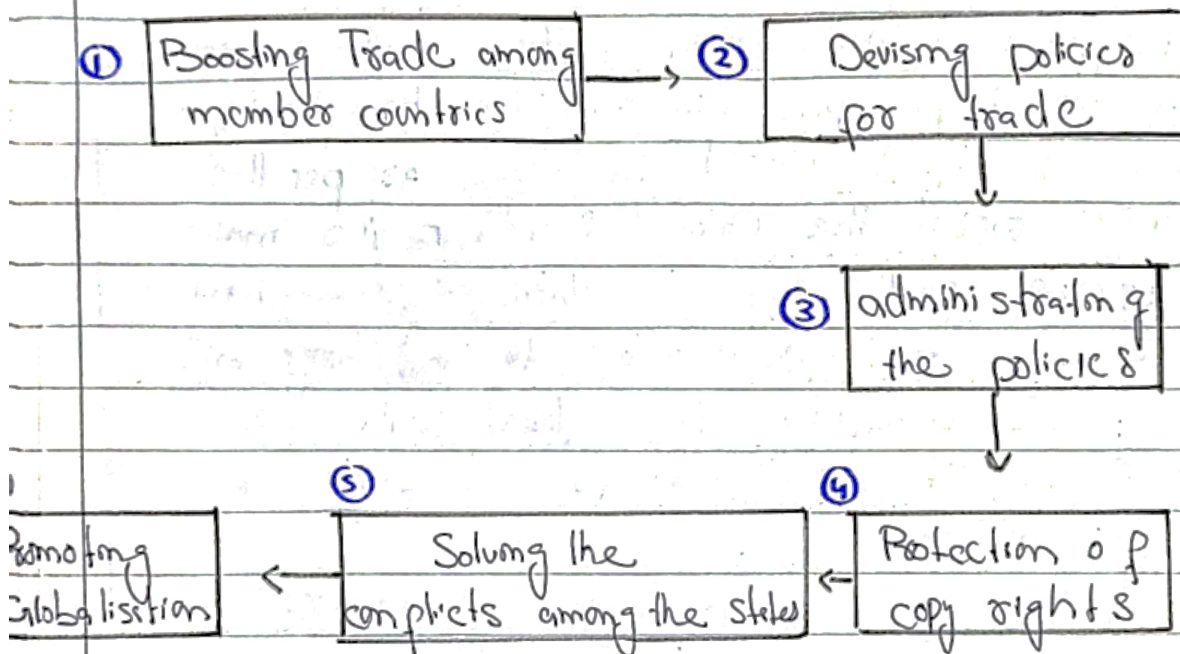 ① Boosting Trade among
member countries
② Devising policies
for trade
③ administration of
the policies
④ Protection of
copy rights
⑤ Solving the
conflicts among the states
Promoting
Globalisation